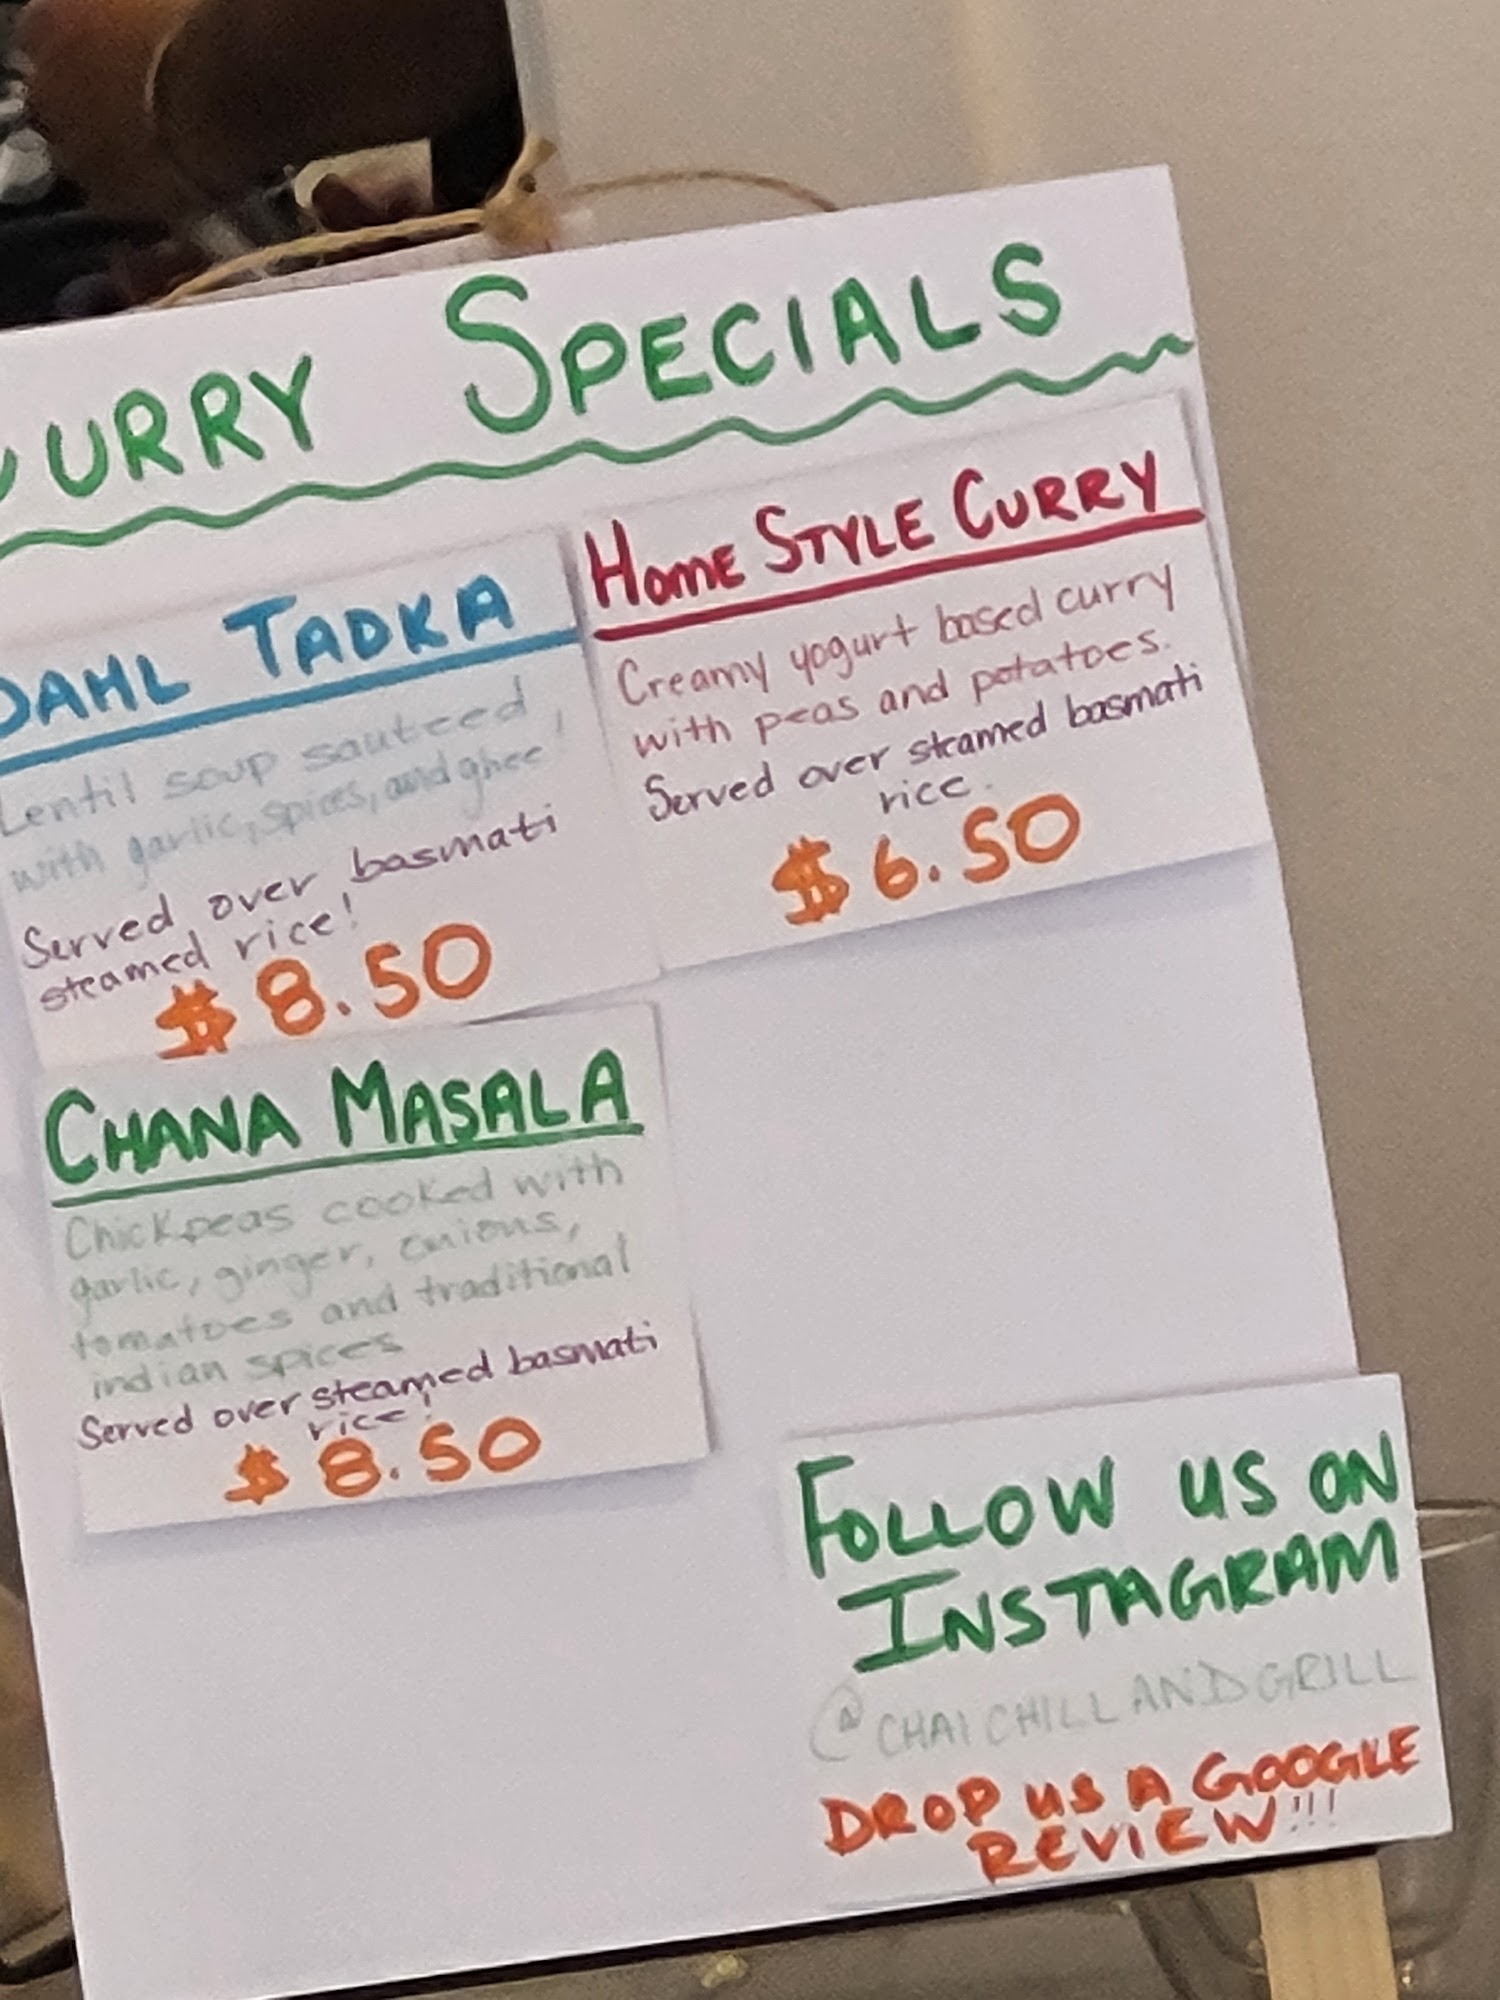 CURRY SPECIALS
DAHL TADKA
Lentil soup sauteed,
with garlic, spices, and ghee
Served over basmati
steamed rice!
$8.50
HOME STYLE CURRY
Creamy yogurt based curry
with peas and potatoes.
Served over steamed basmati
rice.
$6.50
CHANA MASALA
Chickpeas cooked with
garlic, ginger, onions,
tomatoes and traditional
indian spices
Served over steamed basmati
rice!
$8.50
FOLLOW US ON
INSTAGRAM
@CHAICHILLANDGRILL
DROP US A GOOGLE
REVIEW!!!